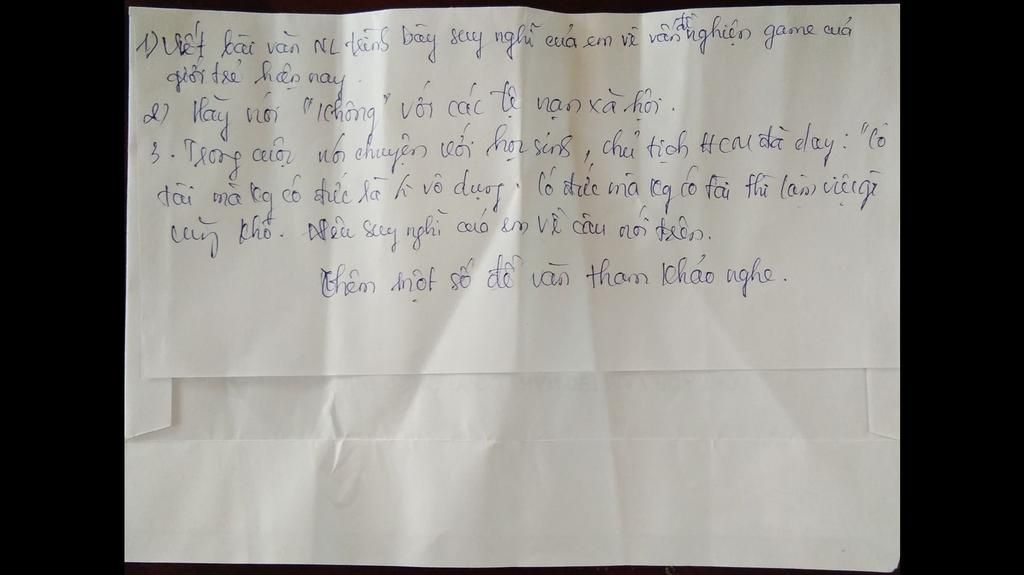 1) Viết bài văn NL trình bày suy nghĩ của em về vấn đề nghiện game của
giới trẻ hiện nay.
2) Hãy nói "không" với các tệ nạn xã hội.
3. Trong cuộc nói chuyện với học sinh, chủ tịch HCM đã dạy: "Có
tài mà kg có đức là k vô dụng. Có đức mà kg có tài thì làm việc gì
cũng khó. Nêu suy nghĩ của em về câu nói trên.
Thêm một số đề văn tham khảo nghe.